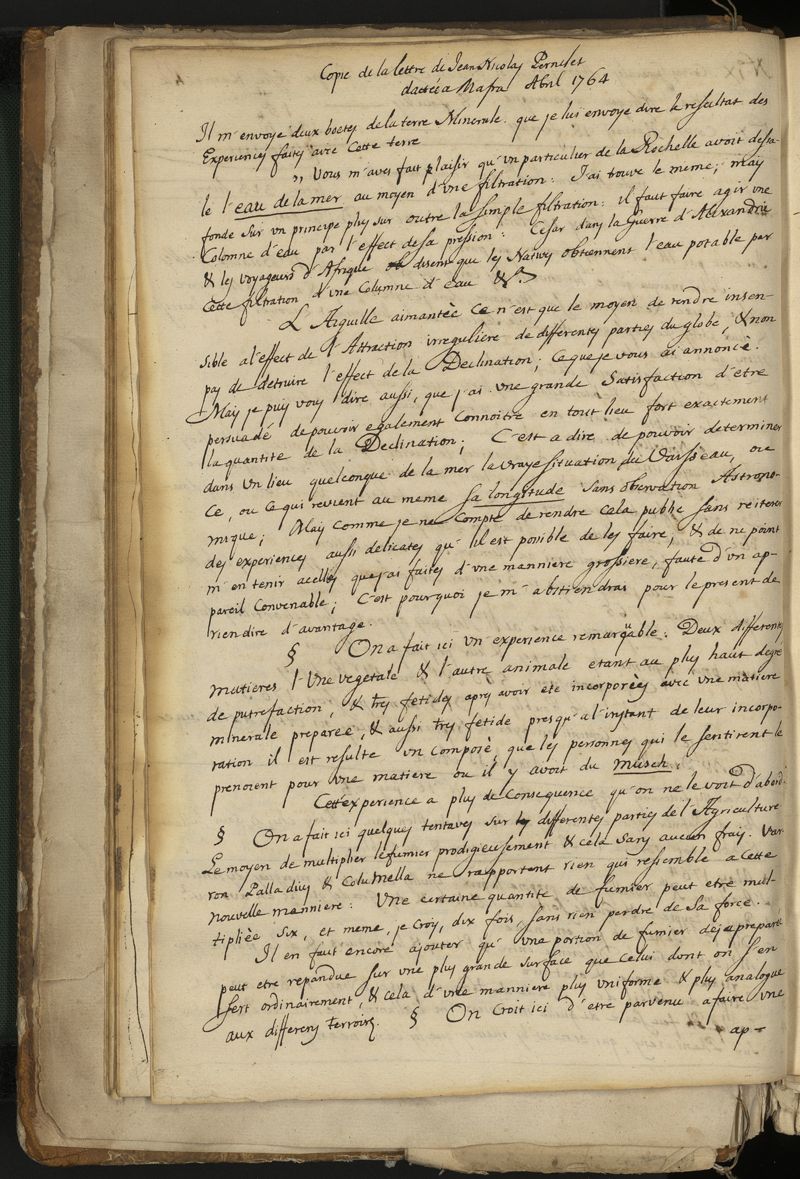 Copie de la lettre de Jean Nicolas Pernelet
dattée a Mafra Abril 1764
Il m'envoye deux boetes de la terre Minerale. que je lui envoye dire le resultat des
Experiences faites avec Cette terre
" Vous m'aves fait plaisir qu'un particulier de la Rochelle avoit dessa-
le l'eau de la mer au moyen d'une filtration: J'ai trouve le meme; mais
fonde sur un principe plus sur outre la simple filtration: il faut faire agir une
Colomne d'eau par l'effect de sa pression: Cesar dans la Guerre d'Alexandrie
& les voyageurs d'Afrique disent que les Natives obtiennent l'eau potable par
Cette filtration d'une Columne d'eau &ª
L'Aiguille aimantèe Ce n'est que le moyen de rendre insen-
sible a l'effect de l'Attraction irreguliere de differentes parties du globe, & non
pas de detruire l'effect de la Declination; Ce que je vous ai annoncè.
Mais je puis vous dire aussi, que j'ai une grande Satisfaction d'etre
persuadé de pouvoir egalement Connoitre en tout lieu fort exactement
la quantite de la Declination; C'est a dire de pouvoir determiner
dans Un lieu quelconque de la mer la vraye situation du Vaisseau, ou
Ce, ou Ce qui revient au meme sa longitude sans observation Astrono-
mique; Mais Comme je ne Compte de rendre Cela public sans reiterer
des experiences aussi delicates qu'il est possible de les faire, & de ne point
m'en tenir a celles que j'ai faites d'une manniere grossiere, faute d'un ap-
pareil Convenable; C'est pourquoi je m'abstiendras pour le present de
rien dire d'avantage.
§ On a fait ici un experience remarquable: Deux differentes
matieres l'Une vegetale & l'autre animale etant au plus haut degre
de putrefaction, & tres fetides apres avoir ete incorporèes avec une matiere
minerale preparee, & aussi tres fetide presqu'a l'instant de leur incorpo-
ration il est resulte un Composè que les personnes qui le sentirent le
prenoient pour une matiere ou il y avoit du musch;
Cett'experience a plus de Consequence qu'on ne le voit d'abord.
§ On a fait ici quelques tentaves sur les differentes parties de l'Agriculture
Le moyen de multiplier le fumier prodigieusement & cela sans aucun frais. Var-
ron Palladius & Columella ne rapportent rien qui ressemble a Cette
nouvelle manniere: Une certaine quantite de fumier peut etre mul-
tipliée Six, et meme, je Crois, dix fois, sans rien perdre de sa force.
Il en faut encore ajouter qu'une portion de fumier deja preparé
peut etre repandue sur une plus grande surface que Celui dont on s'en
sert ordinairement, & cela d'une manniere plus uniforme & plus analogue
aux differens terroirs. § On Croit ici d'etre parvenu a faire une
ap=